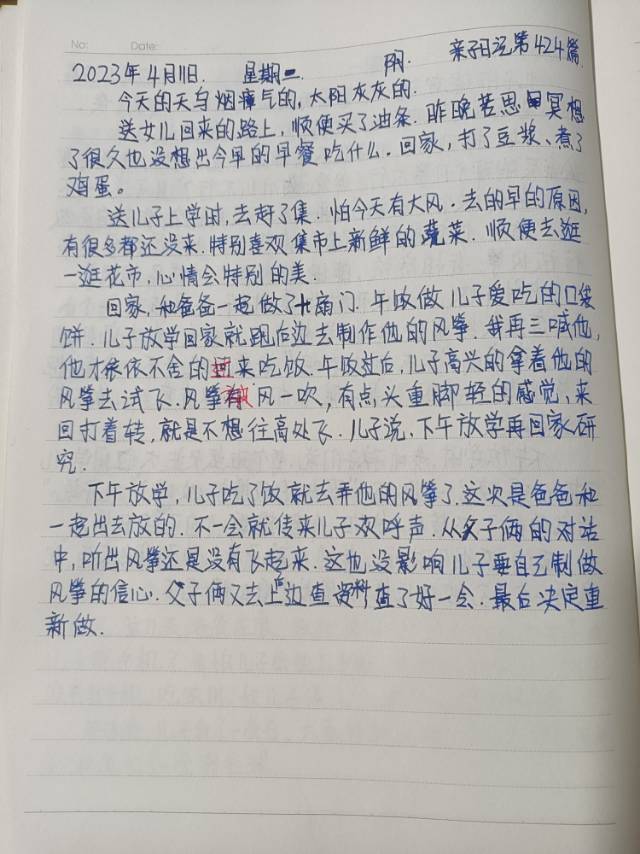 No: Date:
2023年4月11日. 星期二. 阴. 亲子日记第424篇
今天的天乌烟瘴气的,太阳灰灰的.
送女儿回来的路上,顺便买了油条.昨晚苦思冥想
了很久也没想出今早的早餐吃什么.回家,打了豆浆、煮了
鸡蛋。
送儿子上学时,去赶了集.怕今天有大风.去的早的原因,
有很多都还没来.特别喜欢集市上新鲜的蔬菜.顺便去逛
一逛花市,心情会特别的美.
回家,和爸爸一起做了十扇门.午饭做儿子爱吃的口袋
饼.儿子放学回家就跑后边去制作他的风筝.我再三喊他,
他才依依不舍的过来吃饭.午饭过后,儿子高兴的拿着他的
风筝去试飞.风筝被风一吹,有点头重脚轻的感觉,来
回打着转,就是不想往高处飞.儿子说,下午放学再回家研
究.
下午放学,儿子吃了饭就去弄他的风筝了.这次是爸爸和
一起出去放的.不一会就传来儿子欢呼声.从父子俩的对话
中,听出风筝还是没有飞起来.这也没影响儿子要自己制做
风筝的信心.父子俩又去上边查资料查了好一会.最后决定重
新做.